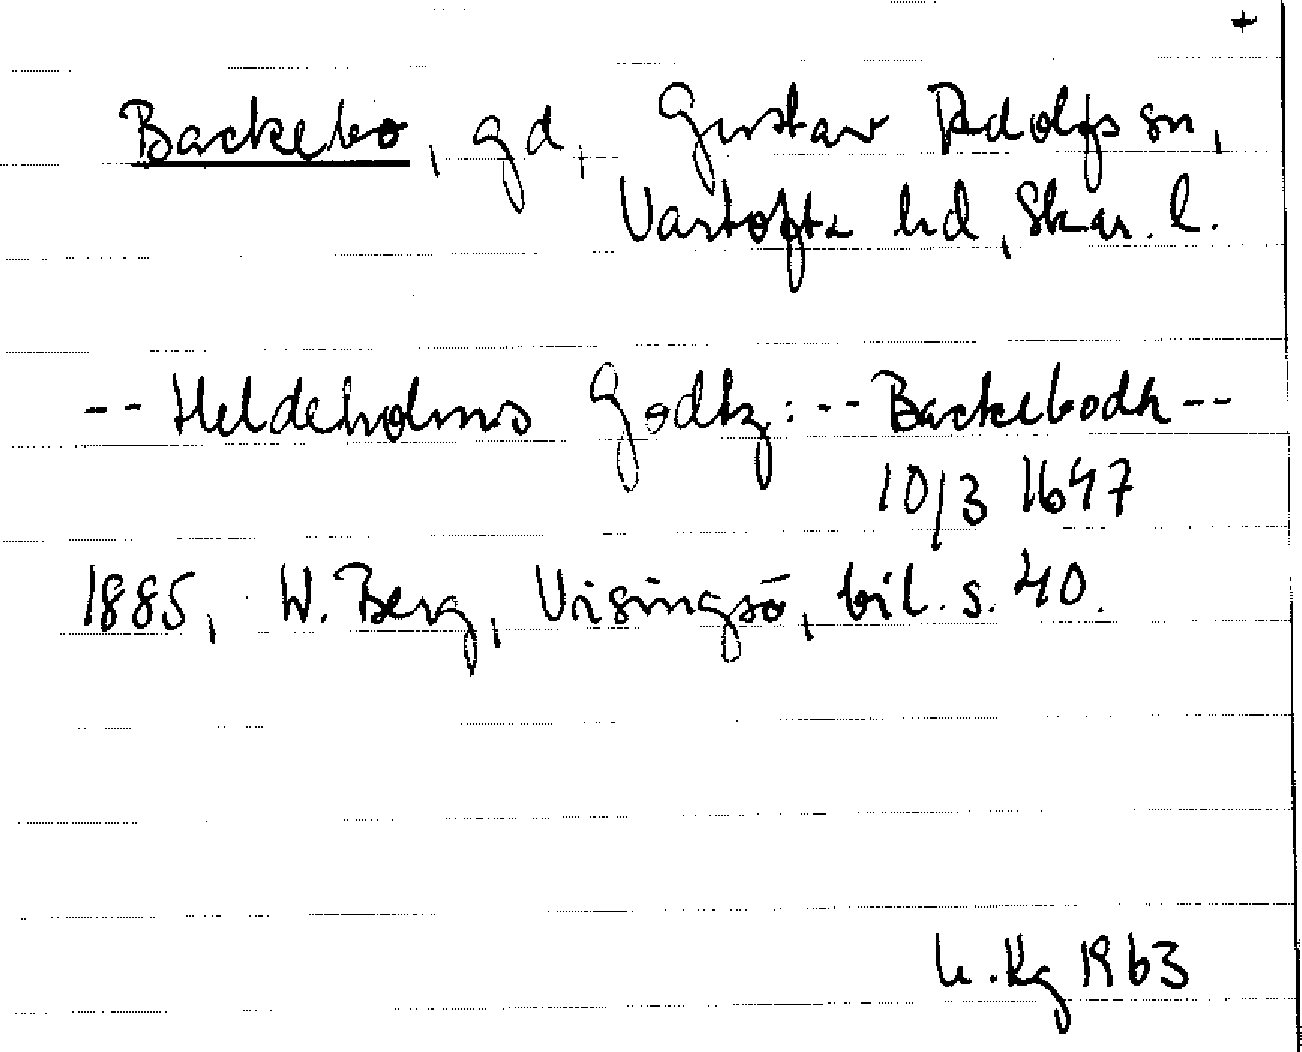 +
Backebo, gd, Gustav Adolfs sn,
Vartofta hd, Skar. l.
-- Heldeholms Godtz: -- Backebodh --
10/3 1647
1885, W. Berg, Visingsö, bil. s. 40.
1963